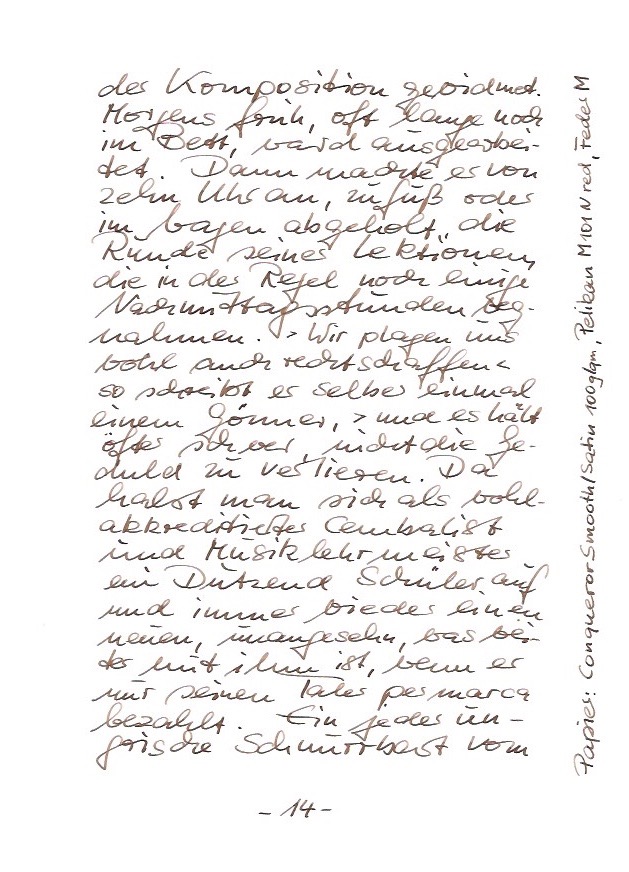 der Komposition gewidmet.
Morgens früh, oft lange noch
im Bett, ward ausgearbei-
tet. Dann machte er von
zehn Uhr an, zu fuß oder
im Wagen abgeholt, die
Runde seiner Lektionen,
die in der Regel noch einige
Nachmittagsstunden weg-
nahmen. >Wir plagen uns
wohl auch rechtschaffen<
so schreibt er selber einmal
einem Gönner, >und es hält
öfter schwer, nicht die Ge-
duld zu verlieren. Da
halst man sich als wohl-
akkreditierter Cembalist
und Musiklehrmeister
ein Dutzend Schüler auf
und immer wieder einen
neuen, unangesehn, was wei-
ter mit ihm ist, wenn er
nur seinen Taler per marca
bezahlt. Ein jeder un-
grische Schnurrbart vom
- 14 -
Papier: Conqueror Smooth/Satin 100g/qm, Pelikan M101N red, Feder M